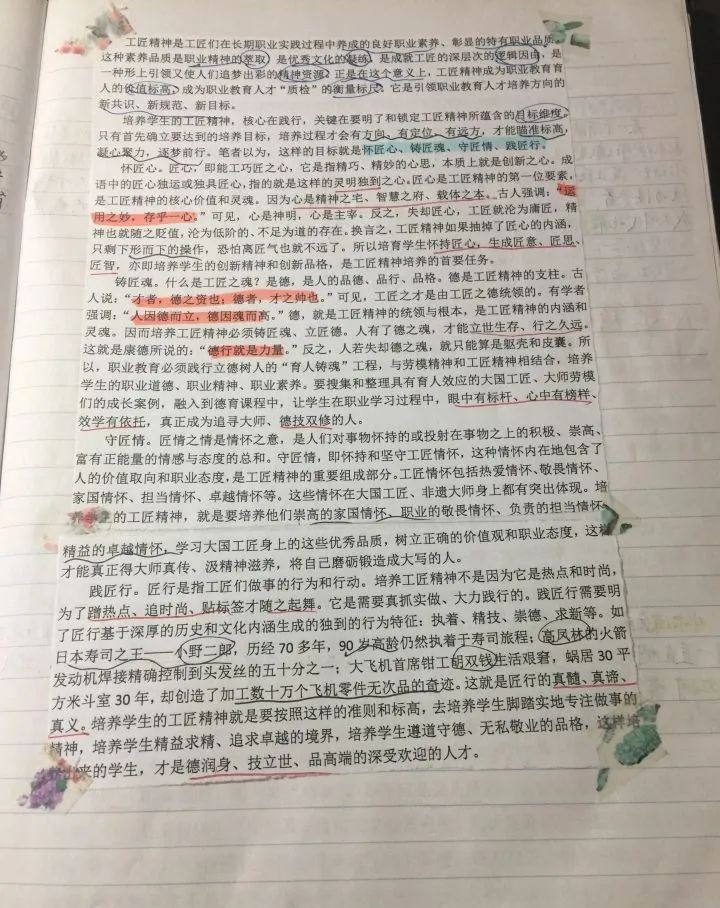 工匠精神是工匠们在长期职业实践过程中养成的良好职业素养、彰显的特有职业品质。
这种素养品质是职业精神的萃取，是优秀文化的凝练，是成就工匠的深层次的逻辑因由，是
一种形上引领又使人们追梦出彩的精神资源。正是在这个意义上，工匠精神成为职业教育育
人的价值标高，成为职业教育人才“质检”的衡量标尺。它是引领职业教育人才培养方向的
新共识、新规范、新目标。
培养学生的工匠精神，核心在践行，关键在要明了和锁定工匠精神所蕴含的目标维度。
只有首先确立要达到的培养目标，培养过程才会有方向、有定位、有远方，才能瞄准标高，
凝心聚力，逐梦前行。笔者以为，这样的目标就是怀匠心、铸匠魂、守匠情、践匠行。
怀匠心。匠心，即能工巧匠之心，它是指精巧、精妙的心思，本质上就是创新之心。成
语中的匠心独运或独具匠心，指的就是这样的灵明独到之心。匠心是工匠精神的第一位要素，
是工匠精神的核心价值和灵魂。因为心是精神之宅、智慧之府、载体之本。古人强调：“运
用之妙，存乎一心。”可见，心是神明，心是主宰。反之，失却匠心，工匠就沦为庸匠，精
神也就随之贬值，沦为低阶的、不足为道的存在。换言之，工匠精神如果抽掉了匠心的内涵，
只剩下形而下的操作，恐怕离匠气也就不远了。所以培育学生怀持匠心，生成匠意、匠思、
匠智，亦即培养学生的创新精神和创新品格，是工匠精神培养的首要任务。
铸匠魂。什么是工匠之魂？是德，是人的品德、品行、品格。德是工匠精神的支柱。古
人说：“才者，德之资也；德者，才之帅也。”可见，工匠之才是由工匠之德统领的。有学者
强调：“人因德而立，德因魂而高。”德，就是工匠精神的统领与根本，是工匠精神的内涵和
灵魂。因而培养工匠精神必须铸匠魂、立匠德。人有了德之魂，才能立世生存、行之久远。
这就是康德所说的：“德行就是力量。”反之，人若失却德之魂，就只能算是躯壳和皮囊。所
以，职业教育必须践行立德树人的“育人铸魂”工程，与劳模精神和工匠精神相结合，培养
学生的职业道德、职业精神、职业素养。要搜集和整理具有育人效应的大国工匠、大师劳模
们的成长案例，融入到德育课程中，让学生在职业学习过程中，眼中有标杆、心中有榜样、
效学有依托，真正成为追寻大师、德技双修的人。
守匠情。匠情之情是情怀之意，是人们对事物怀持的或投射在事物之上的积极、崇高、
富有正能量的情感与态度的总和。守匠情，即怀持和坚守工匠情怀，这种情怀内在地包含了
人的价值取向和职业态度，是工匠精神的重要组成部分。工匠情怀包括热爱情怀、敬畏情怀、
家国情怀、担当情怀、卓越情怀等。这些情怀在大国工匠、非遗大师身上都有突出体现。培
养学生的工匠精神，就是要培养他们崇高的家国情怀、职业的敬畏情怀、负责的担当情怀、
精益的卓越情怀，学习大国工匠身上的这些优秀品质，树立正确的价值观和职业态度，这样
才能真正得大师真传、汲精神滋养，将自己磨砺锻造成大写的人。
践匠行。匠行是指工匠们做事的行为和行动。培养工匠精神不是因为它是热点和时尚，
为了蹭热点、追时尚、贴标签才随之起舞。它是需要真抓实做、大力践行的。践匠行需要明
了匠行基于深厚的历史和文化内涵生成的独到的行为特征：执着、精技、崇德、求新等。如
日本寿司之王——小野二郎，历经 70 多年，90 岁高龄仍然执着于寿司旅程；高凤林的火箭
发动机焊接精确控制到头发丝的五十分之一；大飞机首席钳工胡双钱生活艰窘，蜗居 30 平
方米斗室 30 年，却创造了加工数十万个飞机零件无次品的奇迹。这就是匠行的真髓、真谛、
真义。培养学生的工匠精神就是要按照这样的准则和标高，去培养学生脚踏实地专注做事的
精神，培养学生精益求精、追求卓越的境界，培养学生遵道守德、无私敬业的品格，这样培
来的学生，才是德润身、技立世、品高端的深受欢迎的人才。